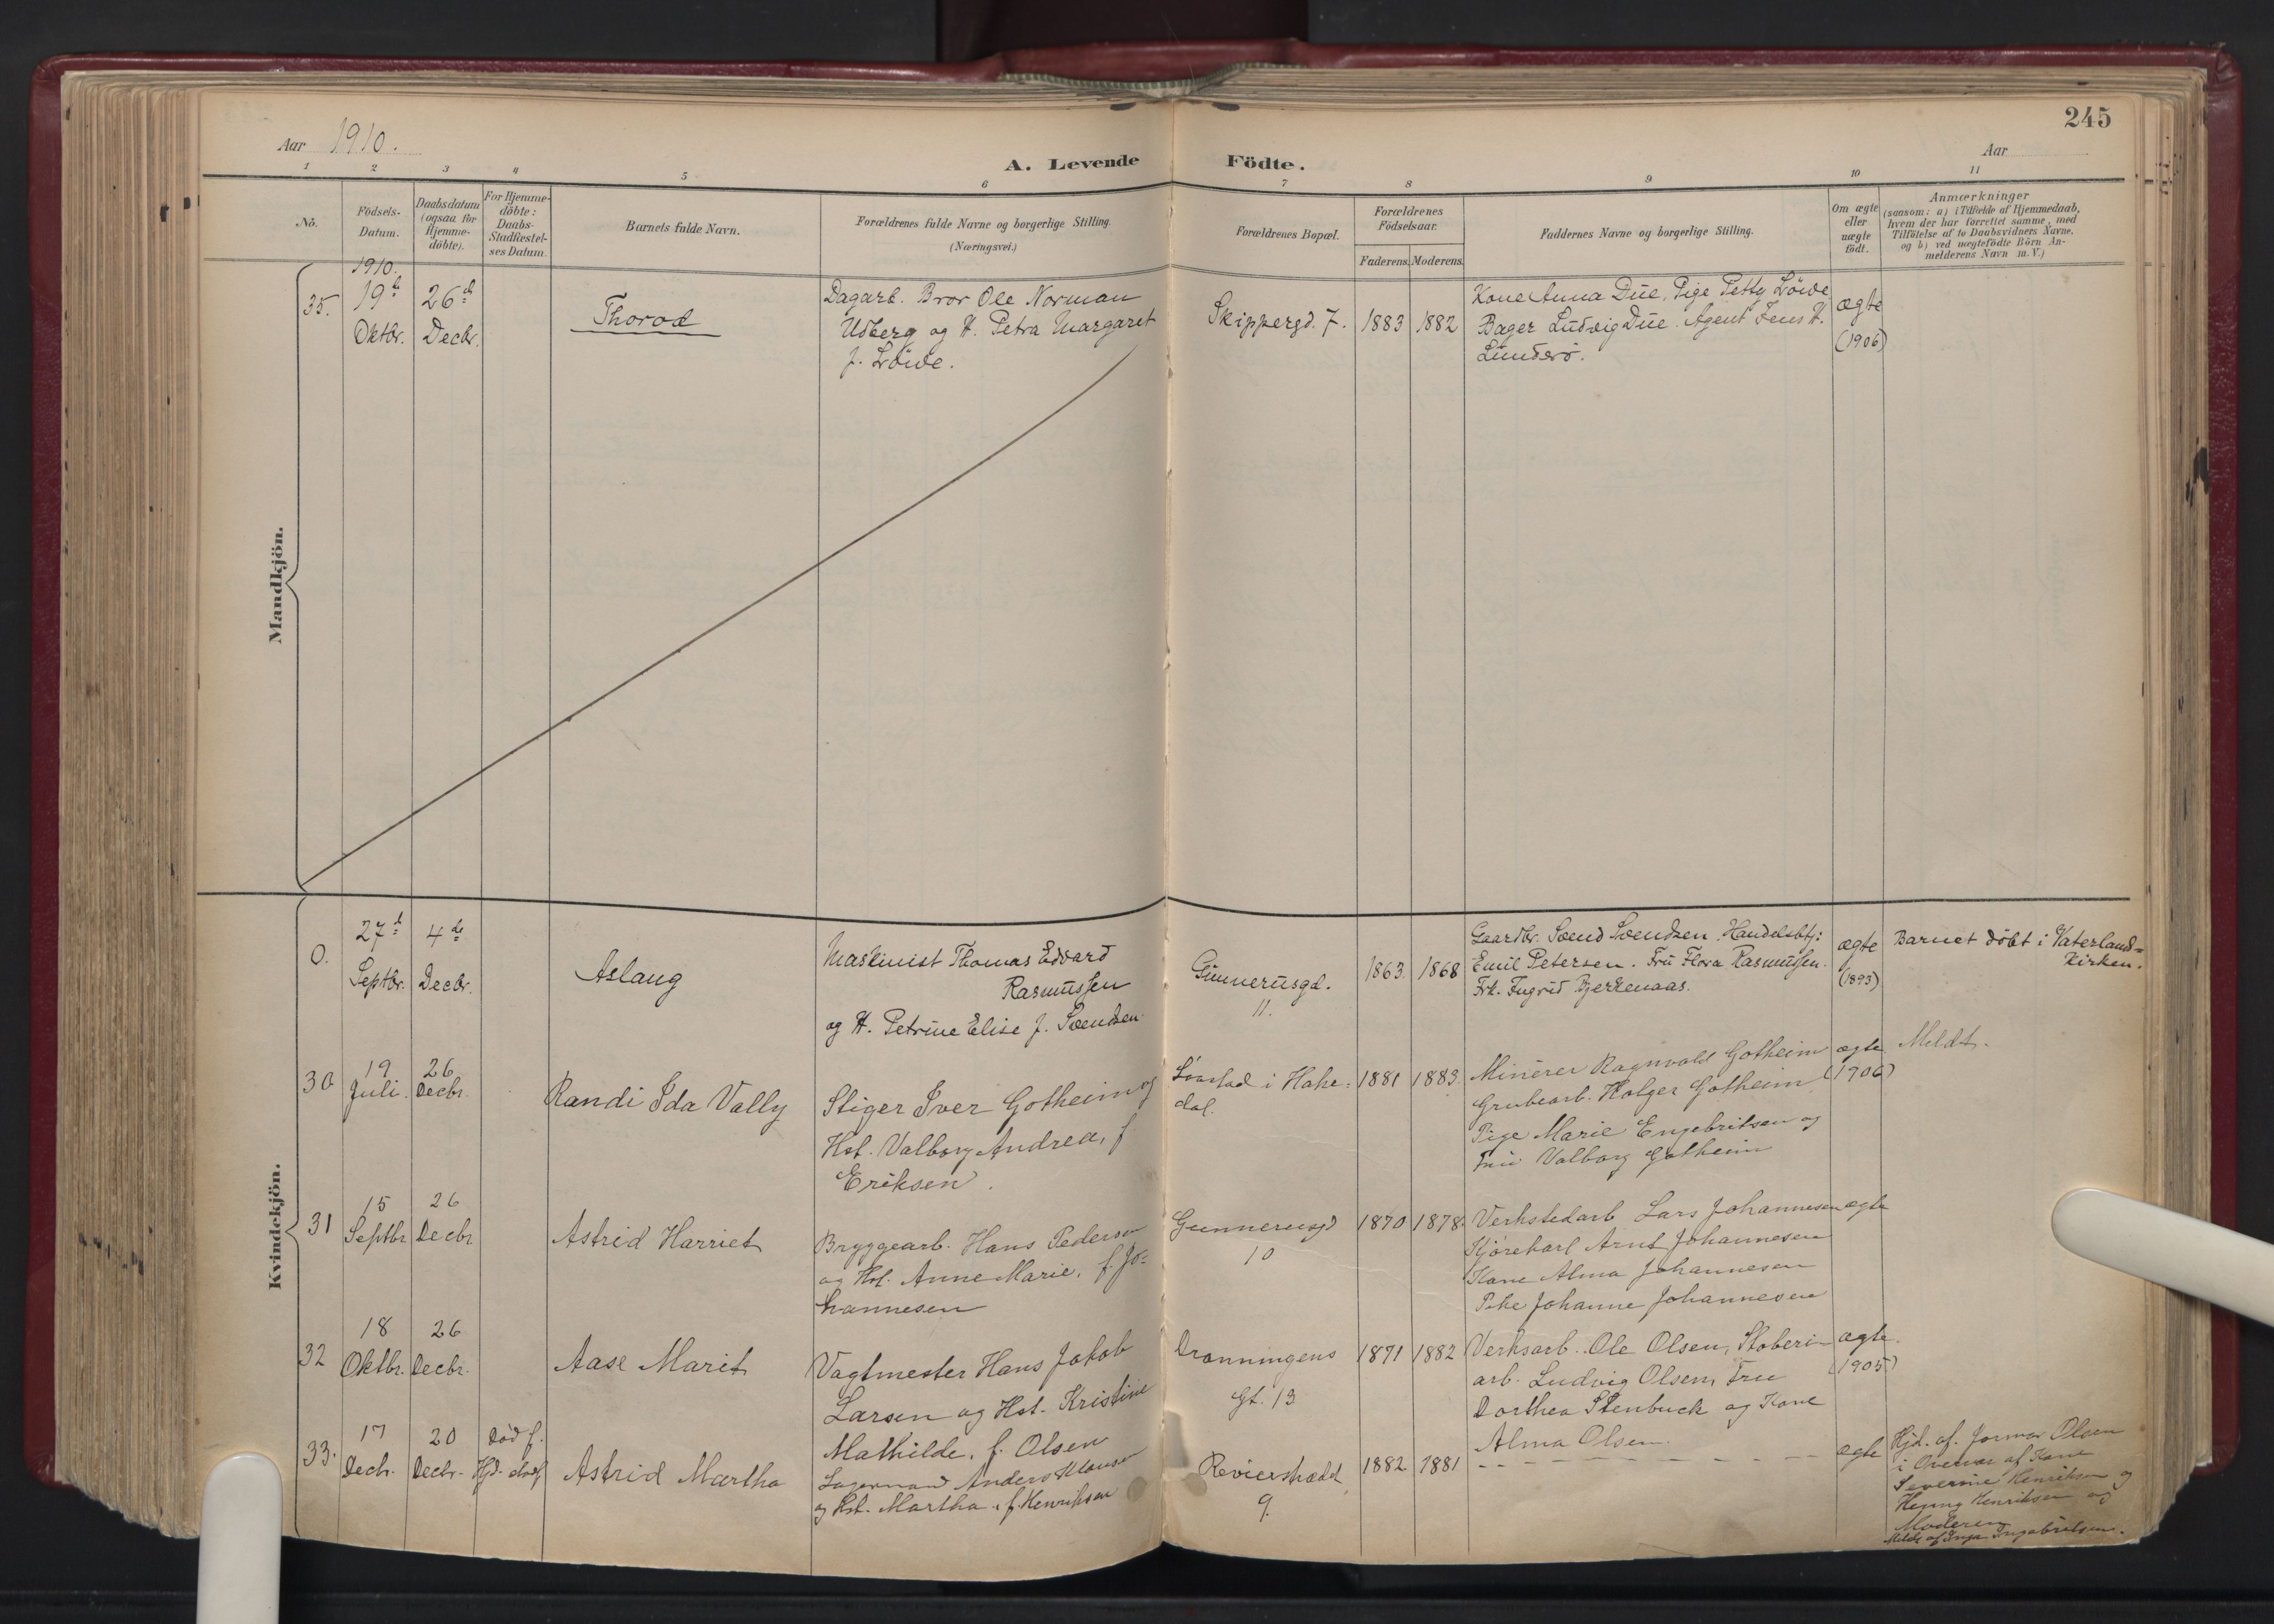 245
Aar 1910.
Aar
A. Levende Födte.
1 2 3 4 5 6 7 8 9 10 11
No.
Födsels-Datum.
Daabsdatum (ogsaa for Hjemme-döbte).
For Hjemme-döbte: Daabs-Stadfæstel-ses Datum.
Barnets fulde Navn.
Forældrenes fulde Navne og borgerlige Stilling.
(Næringsvei.)
Forældrenes Bopæl.
Forældrenes Födselsaar.
Faderens. Moderens.
Faddernes Navne og borgerlige Stilling.
Om ægte eller uægte födt.
Anmærkninger
(saasom: a) i Tilfælde af Hjemmedaab,
hvem der har forrettet samme, med
Tilföielse af to Daabsvidners Navne,
og b) ved uægtefödte Börn An-
melderens Navn m. V.)
Mandkjön.
35.
1910.
19de
Oktbr.
26de
Decbr.
Thorod
Dagarb. Bror Ole Norman
Udberg og H. Petra Margaret
f. Löive.
Skippergd. 7.
1883 1882
Kone Anna Due, Pige Petty Löive
Bager Ludvig Due. Agent Jens H.
Lunderö.
ægte
(1906)
Kvindekjön.
0.
27de
Septbr.
4de
Decbr.
Aslaug
Maskinist Thomas Edvard
Rasmussen
og H. Petrine Elise f. Svendsen
Gunnerusgd.
11.
1863 1868
Gaardbr. Svend Svendsen. Handelsbetj:
Emil Petersen. Fru Flora Rasmussen.
Frk. Ingrid Bjerkenaas.
ægte
(1893)
Barnet döbt i Vaterland=
kirken.
30
19
Juli.
26
Decbr.
Randi Ida Vally
Stiger Iver Gotheim og
Hst. Valborg Andrea, f.
Eriksen.
i Hake=
dal.
1881 1883
Minerer Ragnvald Gotheim
Grubearb. Holger Gotheim
Pige Marie Engebritsen og
Fru Valborg Gotheim
ægte
(1906)
Meldt.
31
15
Septbr
26
Decbr
Astrid Harriet
Bryggearb. Hans Pedersen
og Hst. Anne Marie, f. Jo=
hannesen
Gunnerusgd
10
1870 1878
Verkstedarb Lars Johannesen
Kjörekarl Arnt Johannesen
Kone Alma Johannesen
Pike Johanne Johannesen
ægte
32
18
Oktbr.
26
Decbr.
Aase Marit
Vagtmester Hans Jakob
Larsen og Hst. Kristine
Mathilde, f. Olsen
Dronningens
Gt. 13
1871 1882
Verksarb. Ole Olsen, Stöberi
arb. Ludvig Olsen, Fru
Dorthea Stenbuck og Kone
Alma Olsen.
ægte.
(1905)
33.
17
Decbr.
20
Decbr.
död f.
Astrid Martha
Lagermand Anders Klausen
og Hst. Martha, f. Henriksen
Revierstrædet
9.
1882 1881
ægte
Hjd. af Jormor Olsen
i Overvær af Kone
Severine Henriksen og
Henny Henriksen og
Moderen
Meldt af Inga Ingebritsen.